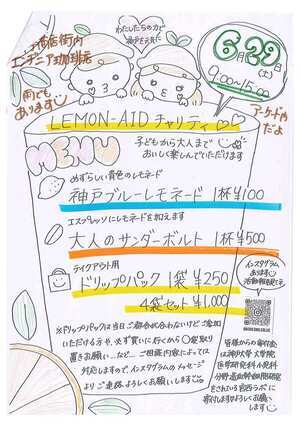 商店街内
エチオピア珈琲店
雨でも
あります
わたしたちの力で
6月29日
(土)
9:00〜15:00
アーケード内
だよ
LEMON-AID チャリティ
MENU
子どもから大人まで
おいしく楽しんでいただけます
めずらしい青色のレモネード
神戸ブルーレモネード 1杯¥100
エスプレッソにレモネードを加えます
大人のサンダーボルト 1杯¥500
テイクアウト用
ドリップパック 1袋¥250
4袋セット ¥1,000
インスタグラム
あります
活動報告してます
※ドリップパックは当日ご都合が合わないけどご参加
いただける方や、必ず買いに行くから取り
置きお願い…など… ご相談内容によっては
対応しますので、インスタグラムのメッセージ
よりご連絡よろしくお願いします
皆様からの寄付金
は神戸大学大学院
医学研究科小児科
分野造血幹細胞研究
をされている
寄付します よろしくお願い
します